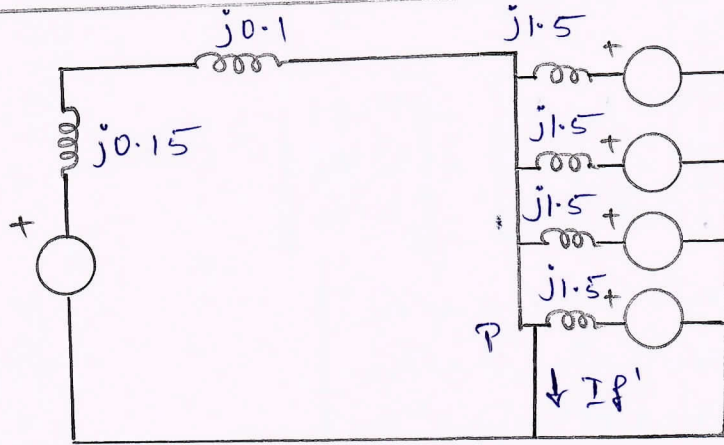 j0.1
j1.5
+
j0.15
j1.5
+
+
j1.5
+
j1.5
+
P
↓ If'